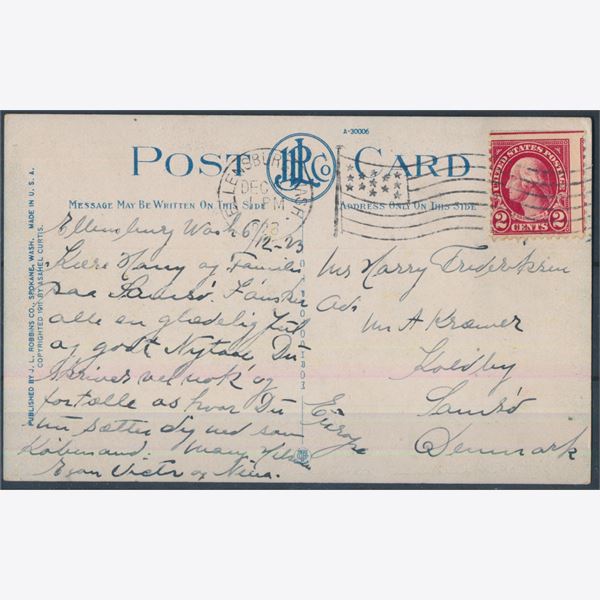 A-30006
POST JLR Co CARD
MESSAGE MAY BE WRITTEN ON THIS SIDE
ADDRESS ONLY ON THIS SIDE
ELLENSBURG WASH.
DEC
PM
UNITED STATES POSTAGE
2 CENTS 2
PUBLISHED BY J. L. ROBBINS CO., SPOKANE, WASH. MADE IN U.S.A.
COPYRIGHTED BY ASAHEL CURTIS.
Ellensburg Wash 6/12-23
Kære Harry og Familie
paa Samsø. Ønsker
alle en glædelig Jul
og godt Nytaar Du
skriver vel nok og
fortælle os hvor Du
nu sætter dig ned som
Købmand. Mary
Egon Victor og Nina.
Mr Harry Frederiksen
Adr
Mr A Kræmer
Kolby
Samsø
Denmark
Europe